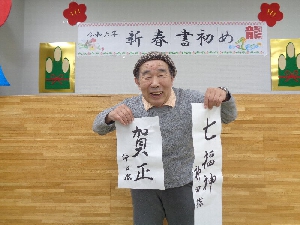 令和六年 新春書初め
賀正
七福神